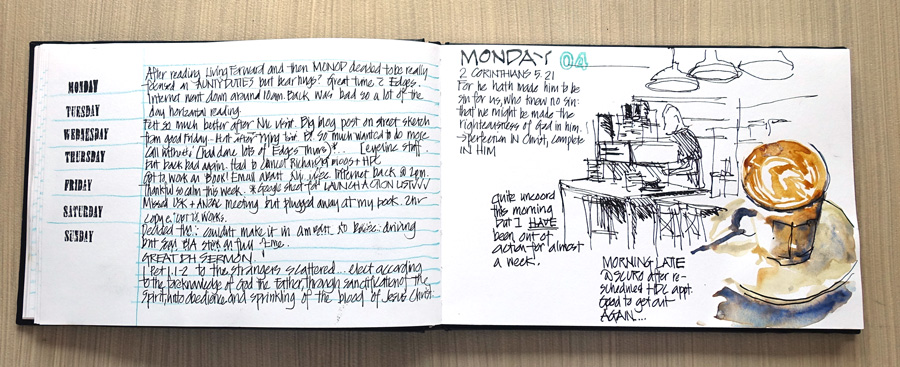 MONDAY
TUESDAY
WEDNESDAY
THURSDAY
FRIDAY
SATURDAY
SUNDAY
After reading Living Forward and then MONOD decided to be really
focused on "AUNTY DUTIES but bearings? Great time c Edges.
Internet went down around 10am. Back was bad so a lot of the
day horizontal reading.
Felt so much better after Nic visit. Big blog post on street sketch
from good Friday. Hurt after trying but so much wanted to do more.
Call Internet: (had done lots of Edges Thurs) ... [eyeline staff
but back bad again. Had to cancel Richard moods + HDC
Got to work on Book! Email about Internet back @ 2pm.
Thankful so calm this week. Google sheet for LAUNCH ACTION LIST
Missed USK + ANZAC meeting but plugged away at my book. 2hr
copy & cut to works.
Decided that couldn't make it in am driving
but step on time.
GREAT DH SERMON!
1 Pet 1.1-2 to the strangers scattered... elect according
to the foreknowledge of God the Father, through sanctification of the
spirit, unto obedience and sprinkling of the blood of Jesus Christ
MONDAY 04
2 CORINTHIANS 5.21
For he hath made him to be
sin for us, who knew no sin:
that we might be made the
righteousness of God in him.
→ perfection IN Christ, complete
IN HIM
quite uncoord
this morning
but I HAVE
been out of
action for almost
a week.
MORNING LATE
@ SCURO after re-
scheduled HDC appt.
Good to get out
AGAIN...